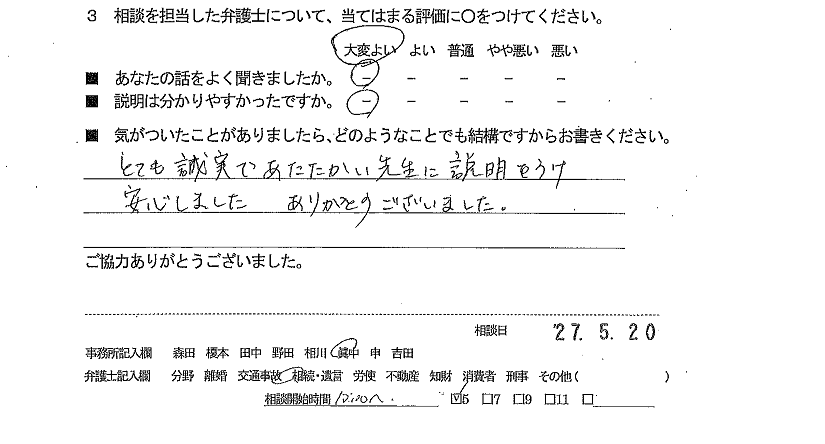 3 相談を担当した弁護士について、当てはまる評価に○をつけてください。
大変よい よい 普通 やや悪い 悪い
■ あなたの話をよく聞きましたか。 － － － － －
■ 説明は分かりやすかったですか。 － － － － －
■ 気がついたことがありましたら、どのようなことでも結構ですからお書きください。
とても誠実であたたかい先生に説明をうけ
安心しました ありがとうございました。
ご協力ありがとうございました。
相談日 '27. 5. 20
事務所記入欄 森田 榎本 田中 野田 相川 眞中 申 吉田
弁護士記入欄 分野 離婚 交通事故 相続・遺言 労使 不動産 知財 消費者 刑事 その他( )
相談開始時間 ☑5 □7 □9 □11 □